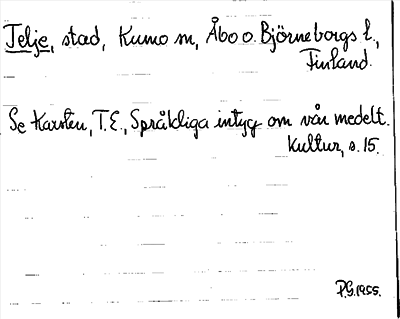 Telje, stad, Kumo sn, Åbo o. Björneborgs l.,
Finland.
Se Karsten, T.E., Språkliga intyg om vår medelt.
kultur, s. 15.
P.G. 1955.